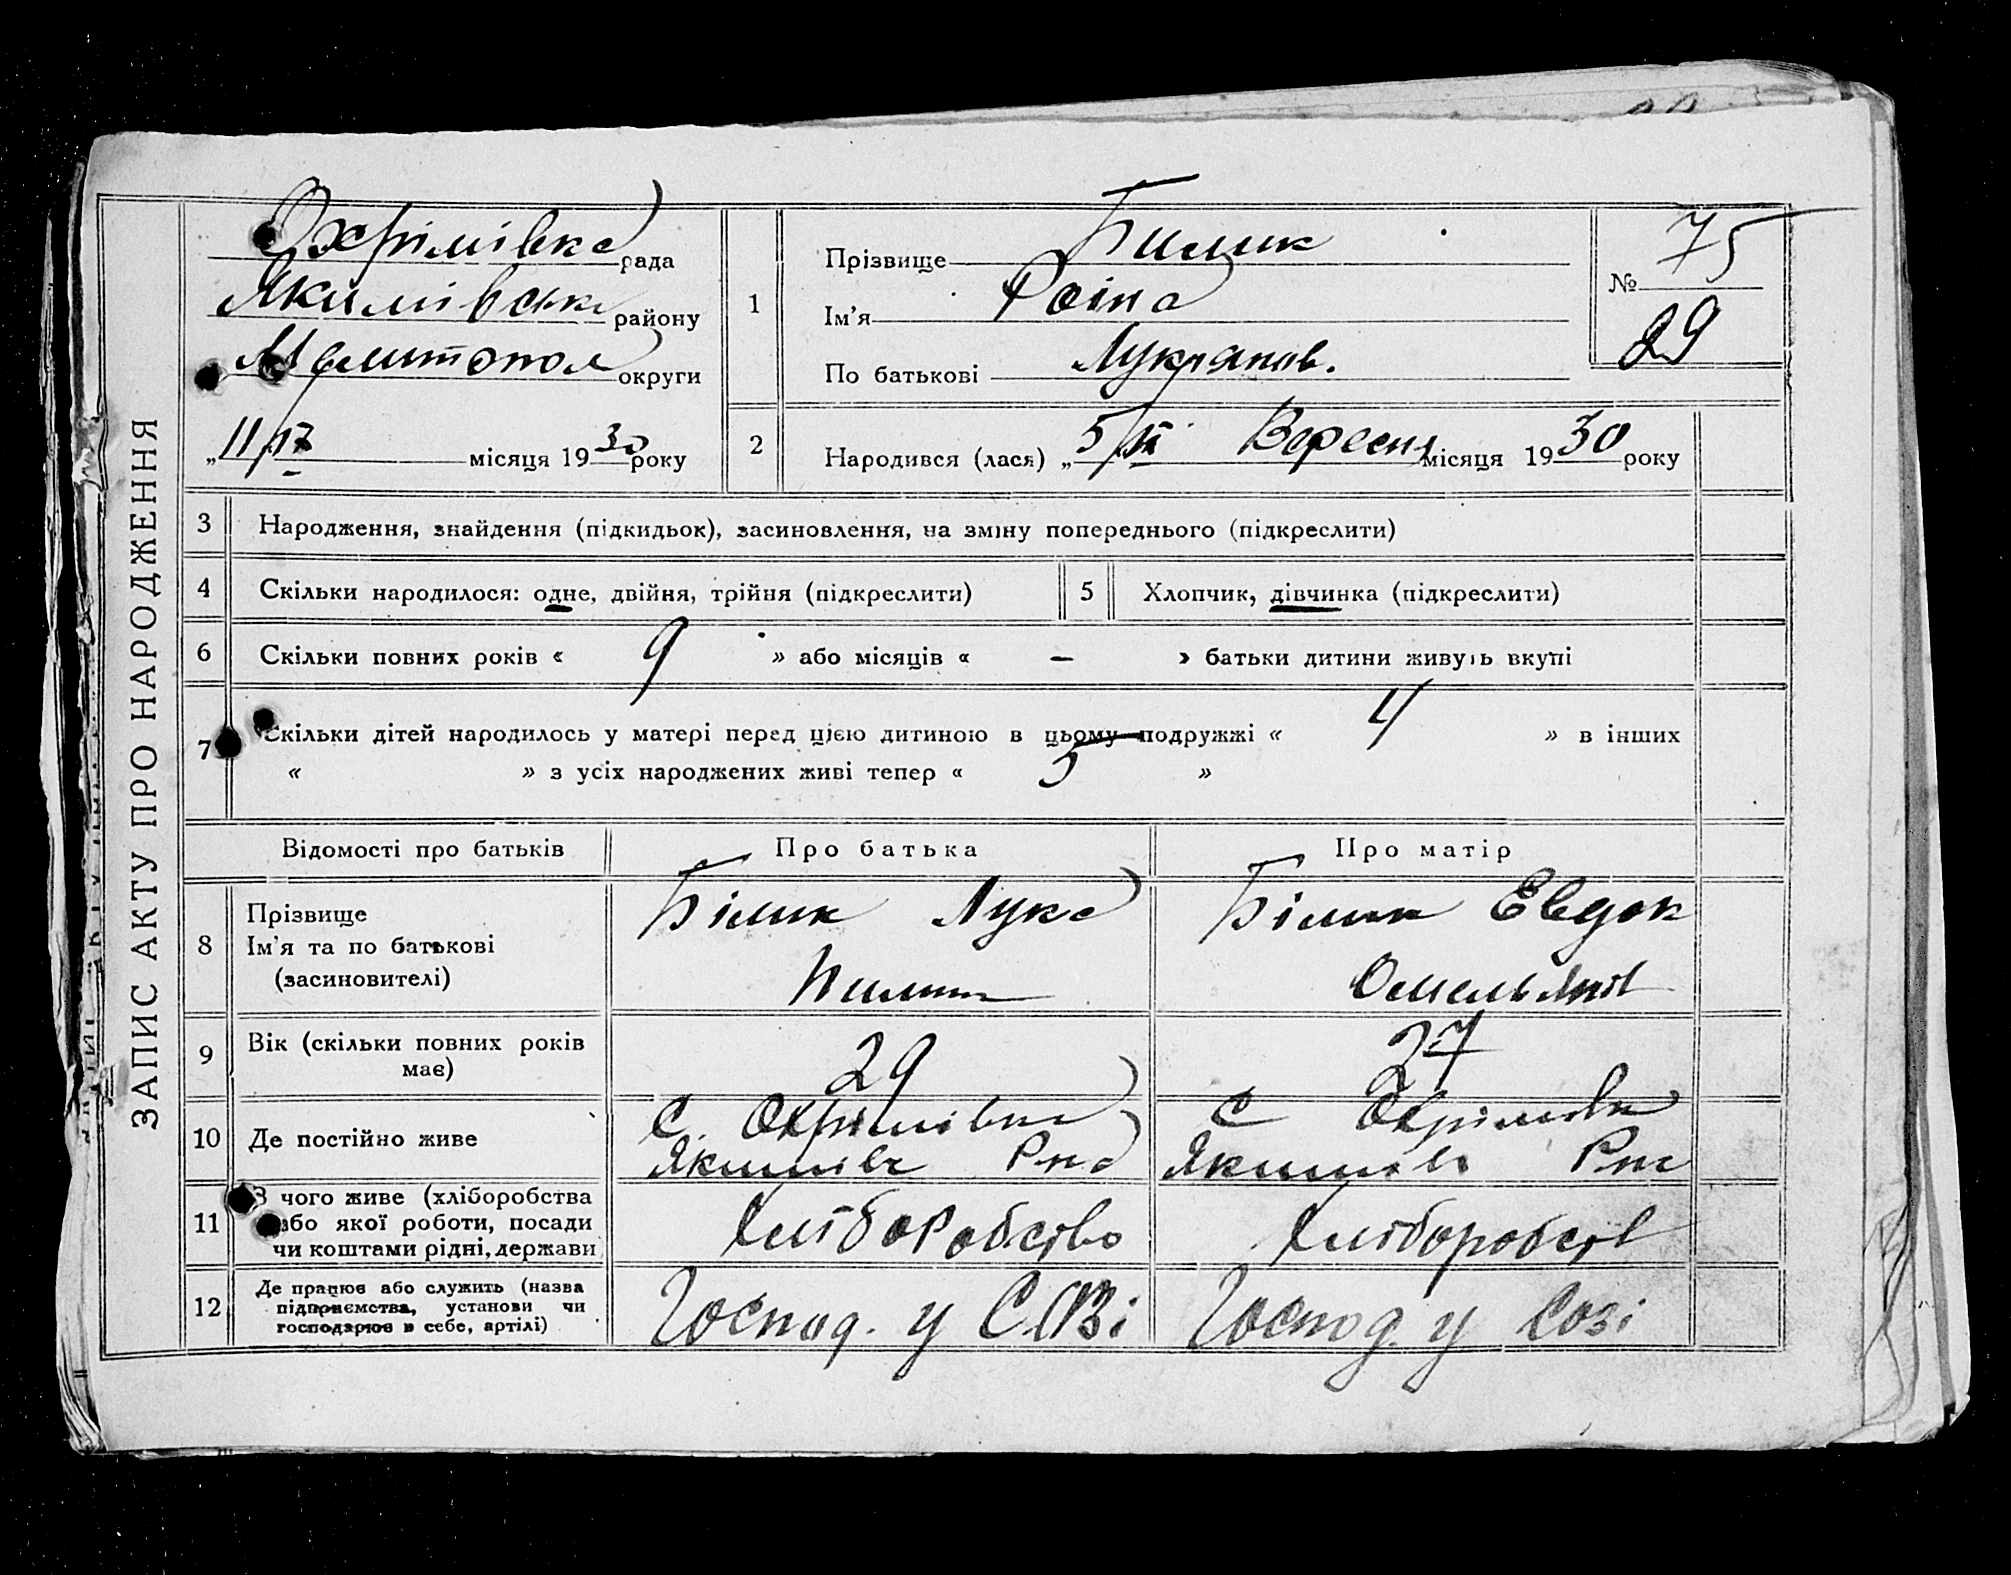 ЗАПИС АКТУ ПРО НАРОДЖЕННЯ
Охрімівка рада
Якимівськ району
Мелитопол округи
„11/IX місяця 1930 року
1
Прізвище Билик
Ім'я
По батькові Лукянов.
№ 75
29
2
Народився (лася) „5/IX Вересня місяця 1930 року
3 Народження, знайдення (підкидьок), засиновлення, на зміну попереднього (підкреслити)
4 Скільки народилося: одне, двійня, трійня (підкреслити) 5 Хлопчик, дівчинка (підкреслити)
6 Скільки повних років « 9 » або місяців « – » батьки дитини живуть вкупі
7 Скільки дітей народилось у матері перед цією дитиною в цьому подружжі « 4 » в інших
« » з усіх народжених живі тепер « 5 »
Відомості про батьків Про батька Про матір
8 Прізвище
Ім'я та по батькові
(засиновителі)
Білик Лука
Пилип
Білик Евдок
Омельянів
9 Вік (скільки повних років
має)
29
27
10 Де постійно живе
С. Охрімівка
Якимів Рна
С Охрімівка
Якимів Рна
11 З чого живе (хліборобства
або якої роботи, посади
чи коштами рідні, держави
Хліборобство
Хліборобств
12 Де працює або служить (назва
підприємства, установи чи
господарює в себе, артілі)
Господ. у СОЗі
Господ. у Созі